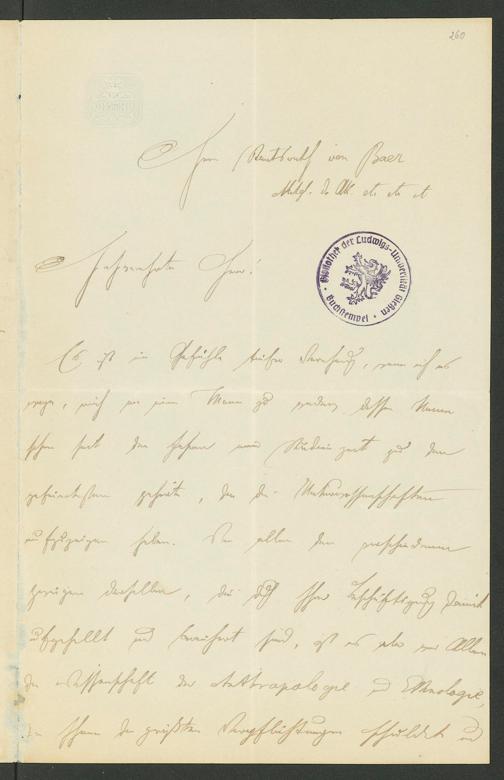 260
Herrn Staatsrath von Baer
Mitgl. d. Ak. etc etc etc
Hochverehrter Herr!
Bibliothek der Ludwigs-Universität Gießen
Buchstempel
Es ist im Gefühle tiefer Verehrung, wenn ich es
wage, mich an einen Mann zu wenden, dessen Namen
schon seit den Jahren meiner Studienzeit zu den
gefeiertsten gehörte, den die Naturwissenschaften
aufzuzeigen haben. Von allen den verschiedenen
Zweigen derselben, die durch Ihre Beschäftigung damit
aufgehellt und bereichert sind, ist es aber vor Allem
die Wissenschaft der Anthropologie und Ethnologie,
die Ihnen die größten Verpflichtungen schuldet und